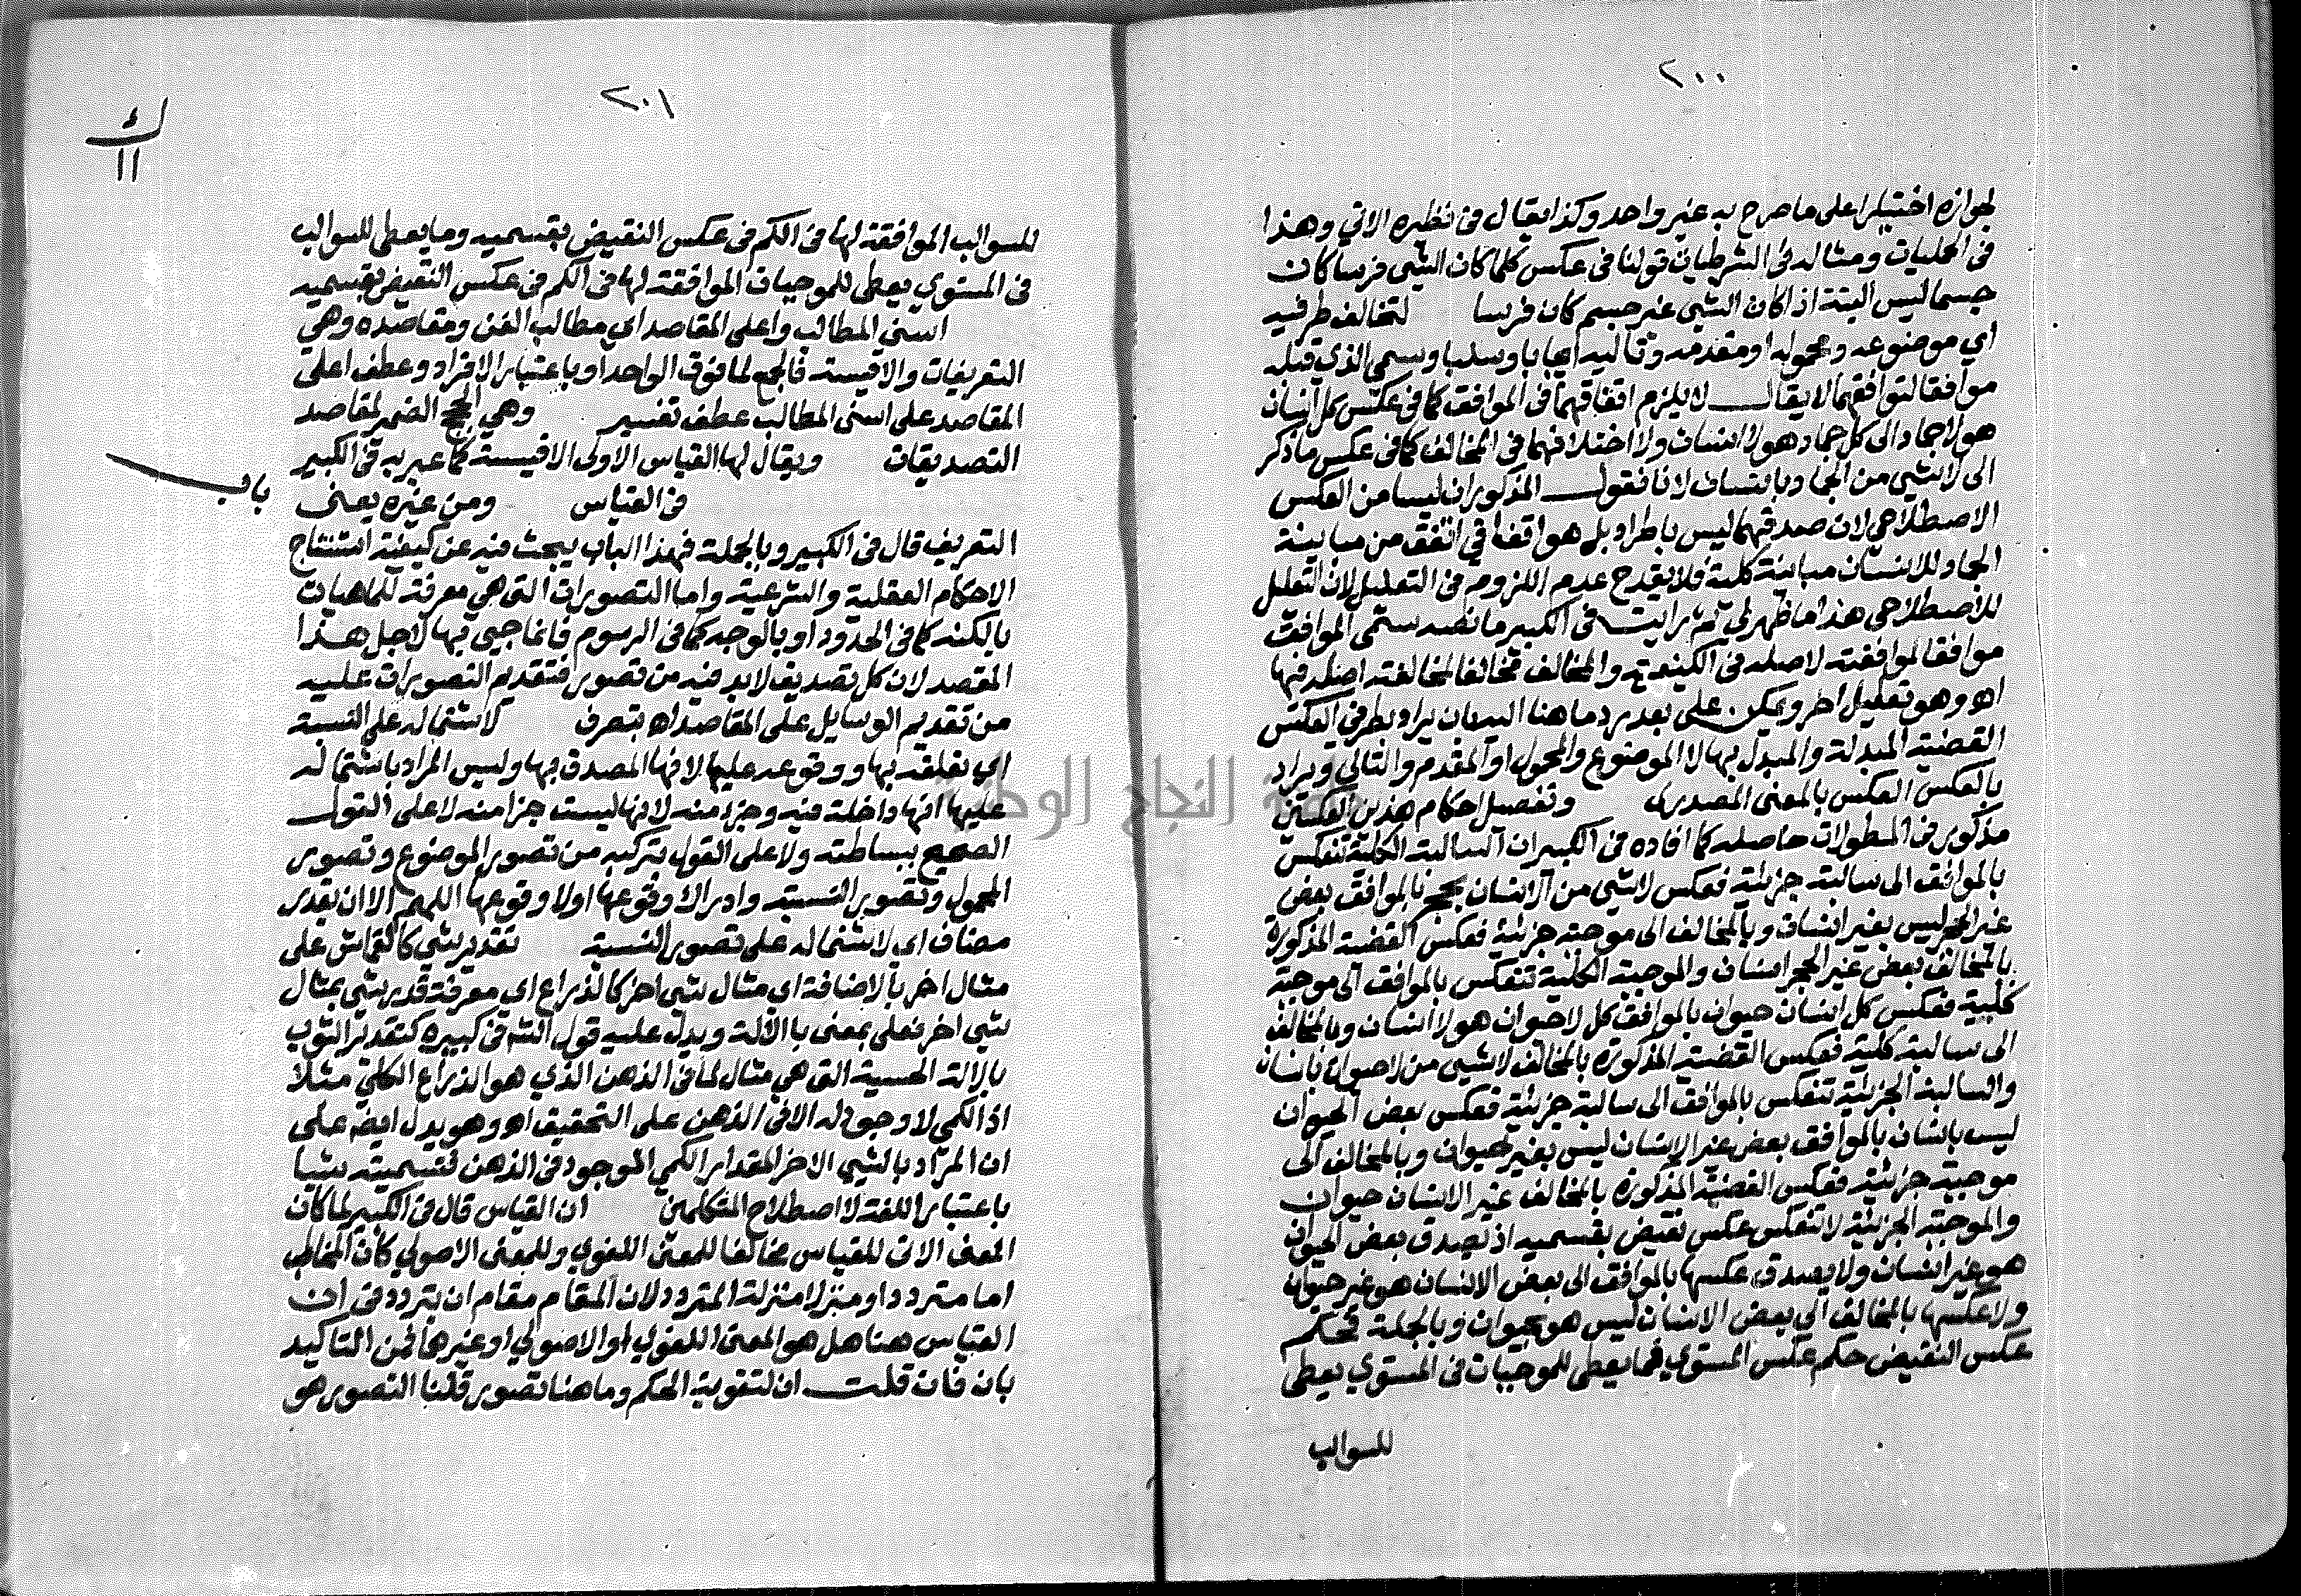 ٢٠٠
لجوازه اختيارا على ما صرح به غير واحد وكذا يقال في نظيره الاتي وهذا
في الحمليات ومثاله في الشرطيات قولنا في عكس كلما كان الشي فرسا كان
جسما ليس البتة اذا كان الشي غير جسم كان فرسا لتخالف طرفيه
اي موضوعه ومحموله او مقدمه وتاليه ايجابا وسلبا وسمي الذي قبله
موافقا لتوافقهما لا يقال لا يلزم اتفاقهما في الموافق كما في عكس كل انسان
هو لا جماد الى كل جماد هو لا انسان ولا اختلافهما في المخالف كما في عكس ما ذكر
الى لا شي من الجماد بانسان لانا نقول المذكوران ليسا من العكس
الاصطلاحي لان صدقهما ليس باطراد بل هو اتفاقي اتفق من مباينة
الجماد للانسان مباينة كلية فلا يقدح عدم اللزوم في التعليل لان التعليل
للاصطلاحي هذا ما ظهر لي ثم رايت في الكبير ما نصه سمى الموافق
موافقا لموافقته لاصله في الكيفية والمخالف مخالفا لمخالفته اصله فيها
اه وهو تعليل اخر ويمكن على بعد رد ما هنا اليه بان يراد بطرفي العكس
القضية المبدلة والمبدل بها لا الموضوع والمحمول او المقدم والتالي ويراد
بالعكس العكس بالمعنى المصدري وتفصيل احكام هذين العكسين
مذكور في المطولات حاصله كما افاده في الكبير ان السالبة الكلية تنعكس
بالموافق الى سالبة جزئية فعكس لا شي من الانسان بحجر بالموافق بعض
غير الحجر ليس بغير انسان وبالمخالف الى موجبة جزئية فعكس القضية المذكورة
بالمخالف بعض غير الحجر انسان والموجبة الكلية تنعكس بالموافق الى موجبة
كلية فعكس كل انسان حيوان بالموافق كل لا حيوان هو لا انسان وبالمخالف
الى سالبة كلية فعكس القضية المذكورة بالمخالف لا شي من لا حيوان بانسان
والسالبة الجزئية تنعكس بالموافق الى سالبة جزئية فعكس بعض الحيوان
ليس بانسان بالموافق بعض غير الانسان ليس بغير حيوان وبالمخالف الى
موجبة جزئية فعكس القضية المذكورة بالمخالف غير الانسان حيوان
والموجبة الجزئية لا تنعكس عكس نقيض بقسميه اذ يصدق بعض الحيوان
هو غير انسان ولا يصدق عكسها بالموافق الى بعض الانسان هو غير حيوان
ولا عكسها بالمخالف الى بعض الانسان ليس هو بحيوان وبالجملة فحكم
عكس النقيض حكم عكس المستوي فما يعطى للموجبات في المستوي يعطى
للسوالب
٢٠١
ك
١١
للسوالب الموافقة لها في الكم في عكس النقيض بقسميه وما يعطى للسوالب
في المستوي يعطى للموجبات الموافقة لها في الكم في عكس النقيض بقسميه
اسنى المطالب واعلى المقاصد اي مطالب الفن ومقاصده وهي
التعريفات والاقيسة فالجمع لما فوق الواحد او باعتبار الافراد وعطف اعلى
المقاصد على اسنى المطالب عطف تفسير وهي الحجج الضمير لمقاصد
التصديقات ويقال لها القياس الاولى الاقيسة كما عبر به في الكبير
باب
في القياس ومن غيره يعنى
التعريف قال في الكبير وبالجملة فهذا الباب يبحث فيه عن كيفية استنتاج
الاحكام العقلية والشرعية واما التصورات التي هي معرفة للماهيات
بالكنه كما في الحدود او بالوجه كما في الرسوم فانما جيي بها لاجل هذا
المقصد لان كل تصديق لابد فيه من تصور فتقديم التصورات عليه
من تقديم الوسايل على المقاصد اه بتصرف لاشتماله على النسبة
اي تعلقه بها ووقوعه عليها لانها المصدق بها وليس المراد باشتماله
عليها انها داخلة فيه وجزء منه لانها ليست جزا منه لا على القول
الصحيح ببساطته ولا على القول بتركبه من تصور الموضوع وتصور
المحمول وتصور النسبة وادراك وقوعها اولا وقوعها اللهم الا ان يقدر
مضاف اي لاشتماله على تصور النسبة تقدير شي كالقماش على
مثال اخر بالاضافة اي مثال شي اخر كالذراع اي معرفة قدر شي بمثال
شي اخر فعلى بمعنى باالالة ويدل عليه قول الشم في كبيره كتقدير الثوب
بالالة الحسية التي هي مثال لما في الذهن الذي هو الذراع الكلي مثلا
اذ الكلي لا وجود له الا في الذهن على التحقيق اه وهو يدل ايضا على
ان المراد بالشي الاخر المقدار الكلي الموجود في الذهن فتسميته شيا
باعتبار اللغة لا اصطلاح المتكلمين ان القياس قال في الكبير لما كان
المعنى الات للقياس مخالفا للمعنى اللغوي وللمعنى الاصولي كان المخاطب
اما مترددا او منزلا منزلة المتردد لان المقام مقام ان يتردد في ان
القياس هنا هل هو المعنى اللغوي او الاصولي او غيرهما فمن التاكيد
بان فان قلت ان لتقوية الحكم وما هنا تصور قلنا التصور هو
جامعة النجاح الوطنية